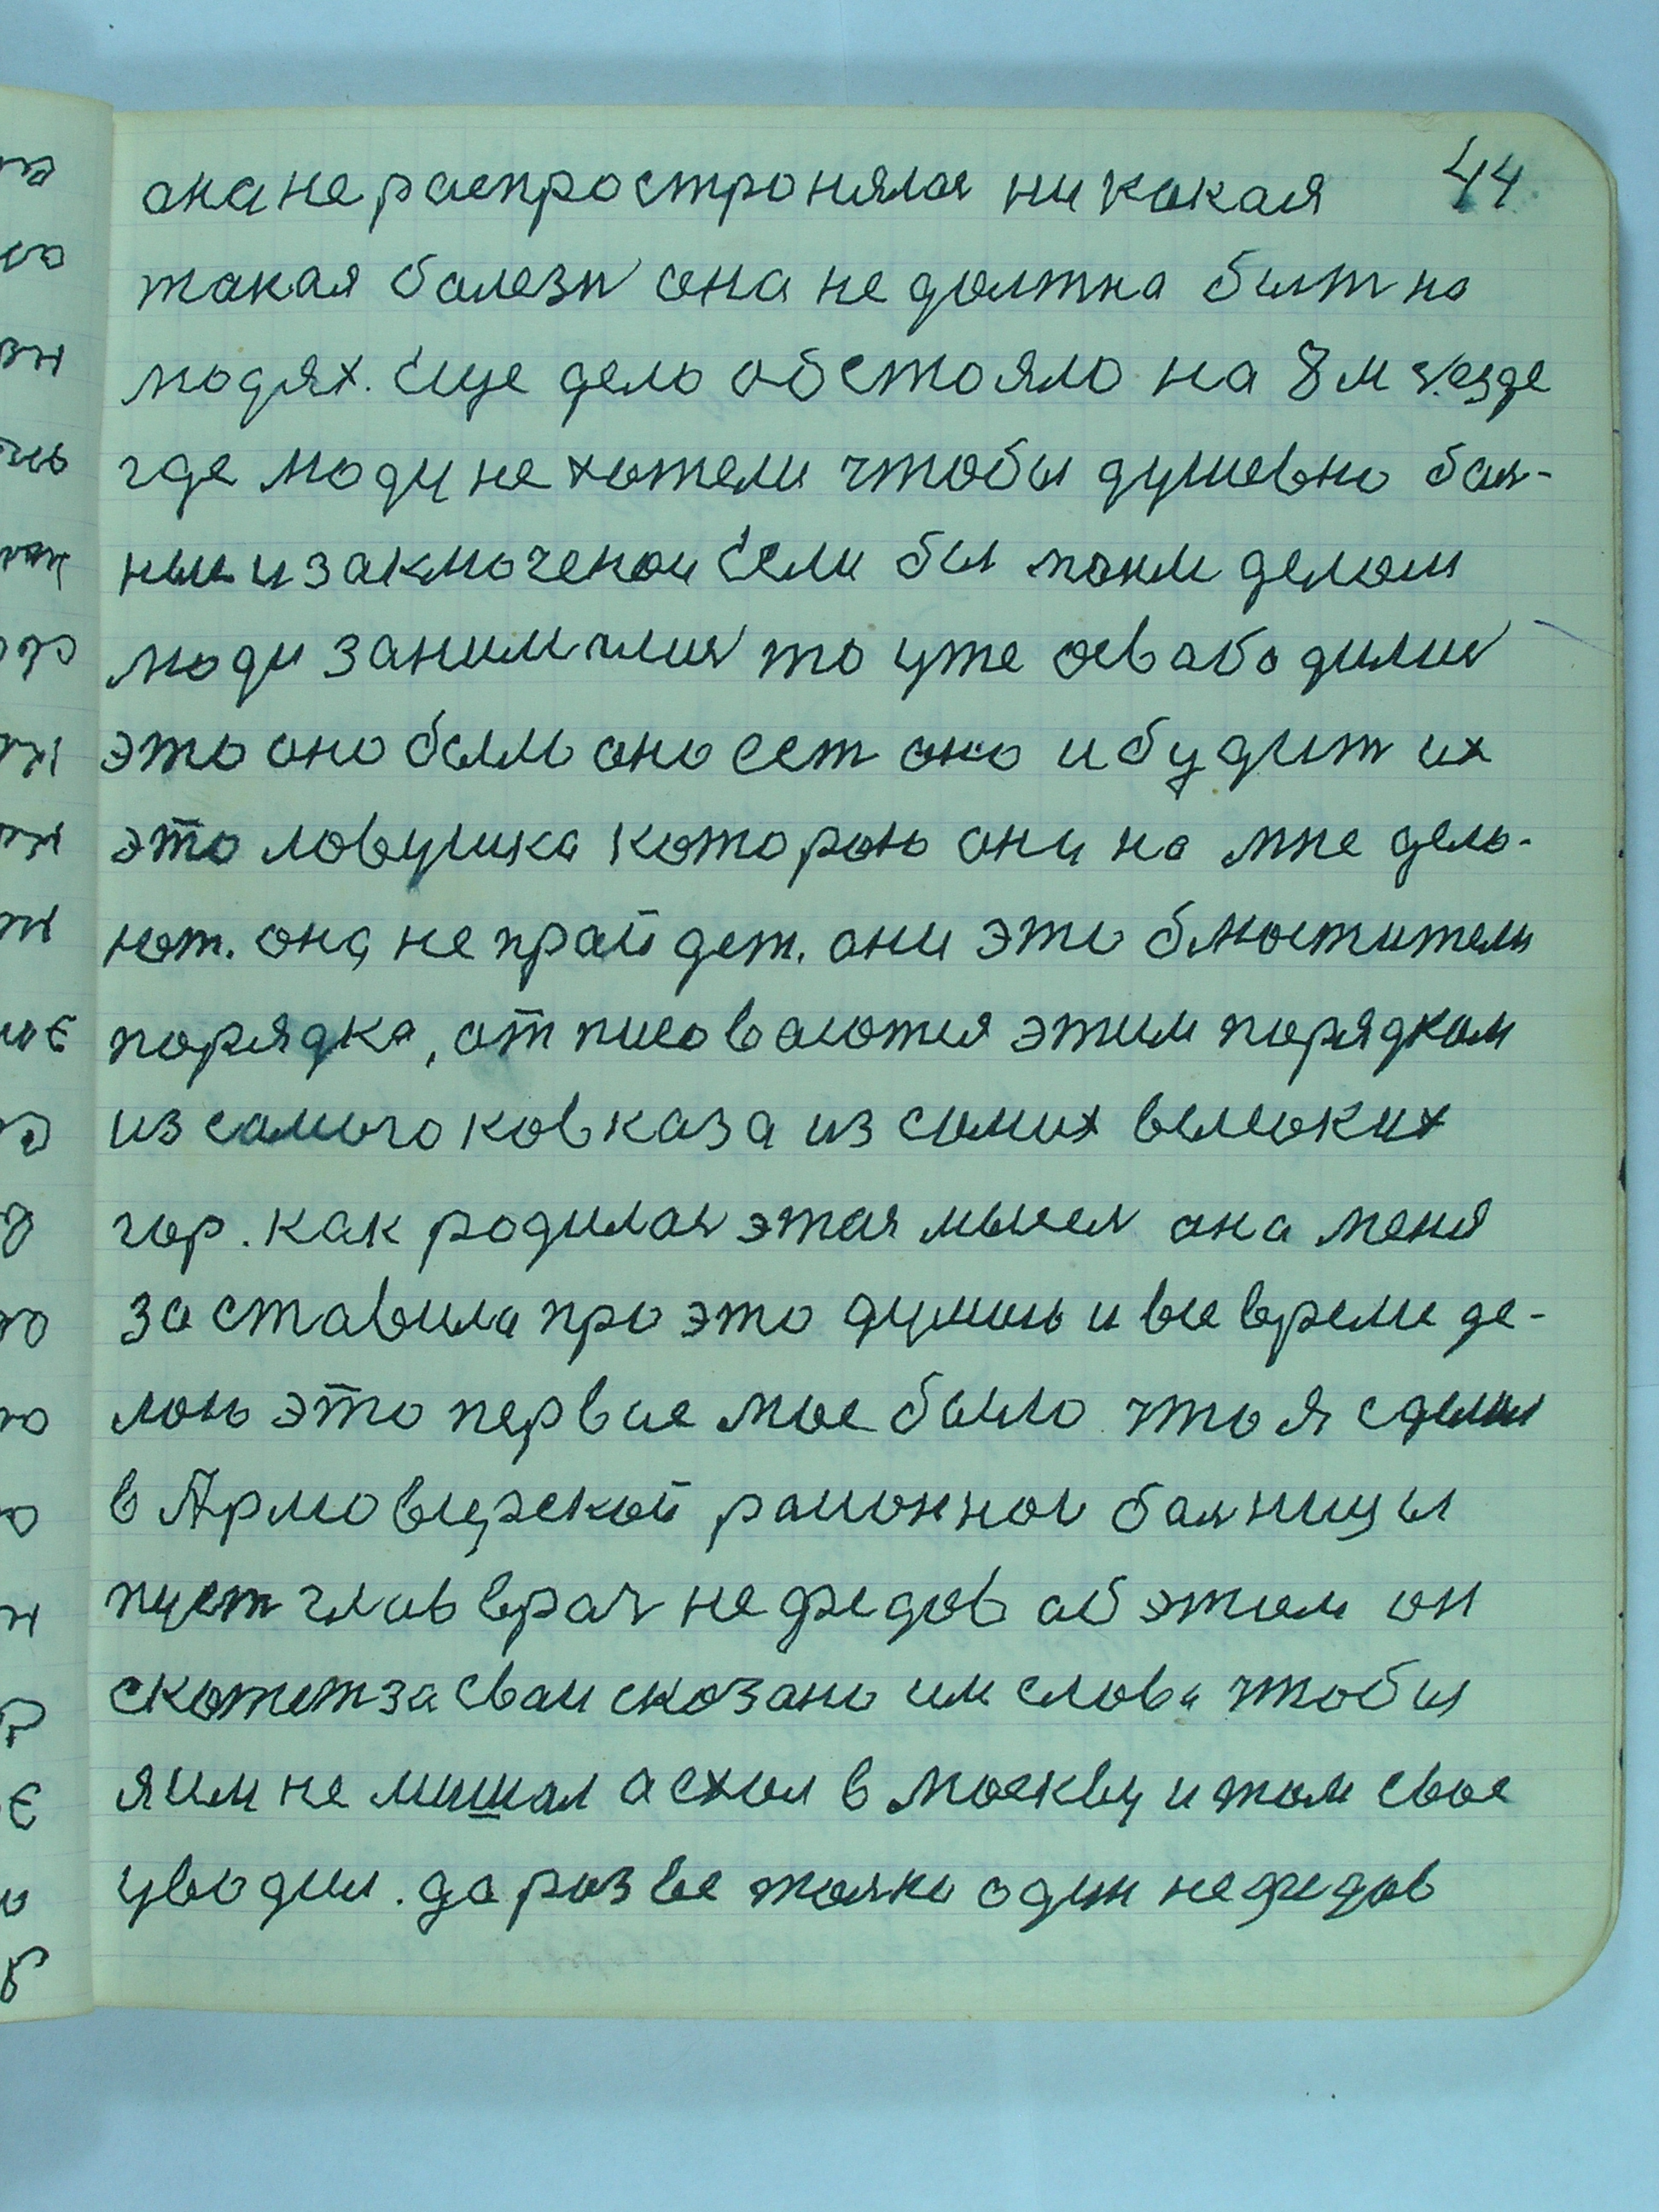 44
она не распростронялас никокая
такая балезн она не должна быт на
людях. Еще дело обстояло на 8 м съезде
где люди не хотели чтобы душевно бал-
ныи и заключеной Если бы таким делом
люди занималис то уже освабодилис
это оно было оно ест оно и будит их
это ловушка которою они на мне дела-
ют. она не прайдет. они это блюстители
порядка, от писоваются этим порядком
из самого ковказа из самих высоких
гор. как родилас этая мысел она меня
заставила про это думать и все время де-
лать это первае мое было что я сделал
в Армовирской районной балницы
пуст глав врач нефедов об этом он
скажет за сваи сказано им слова чтобы
я им не мишал а ехал в москву и там свое
уводил. да разве толко один нефедов